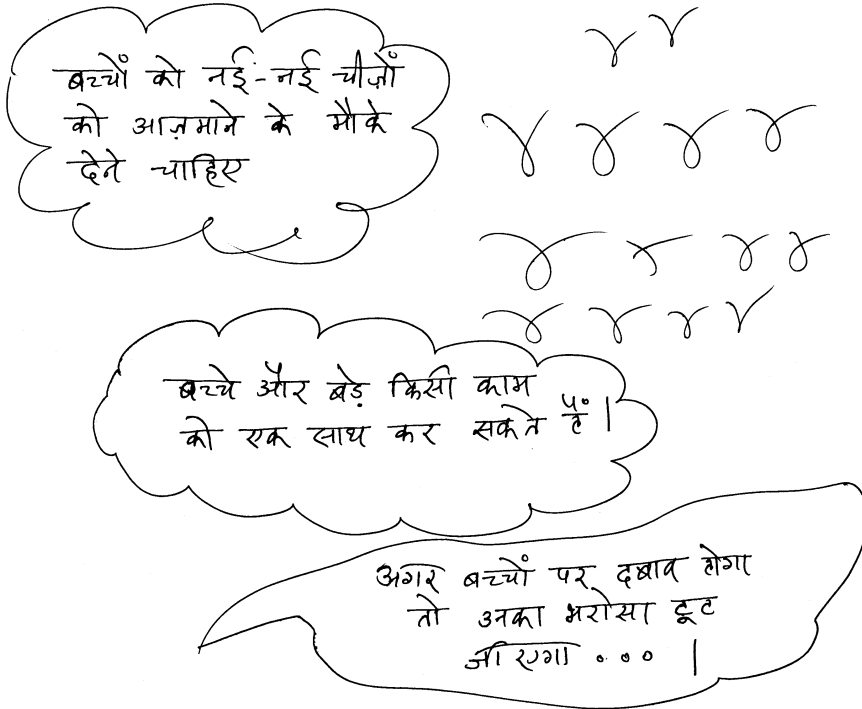 बच्चों को नई-नई चीज़ों
को आज़माने के मौके
देने चाहिए
बच्चे और बड़े किसी काम
को एक साथ कर सकते हैं।
अगर बच्चों पर दबाव होगा
तो उनका भरोसा टूट
जाएगा...।